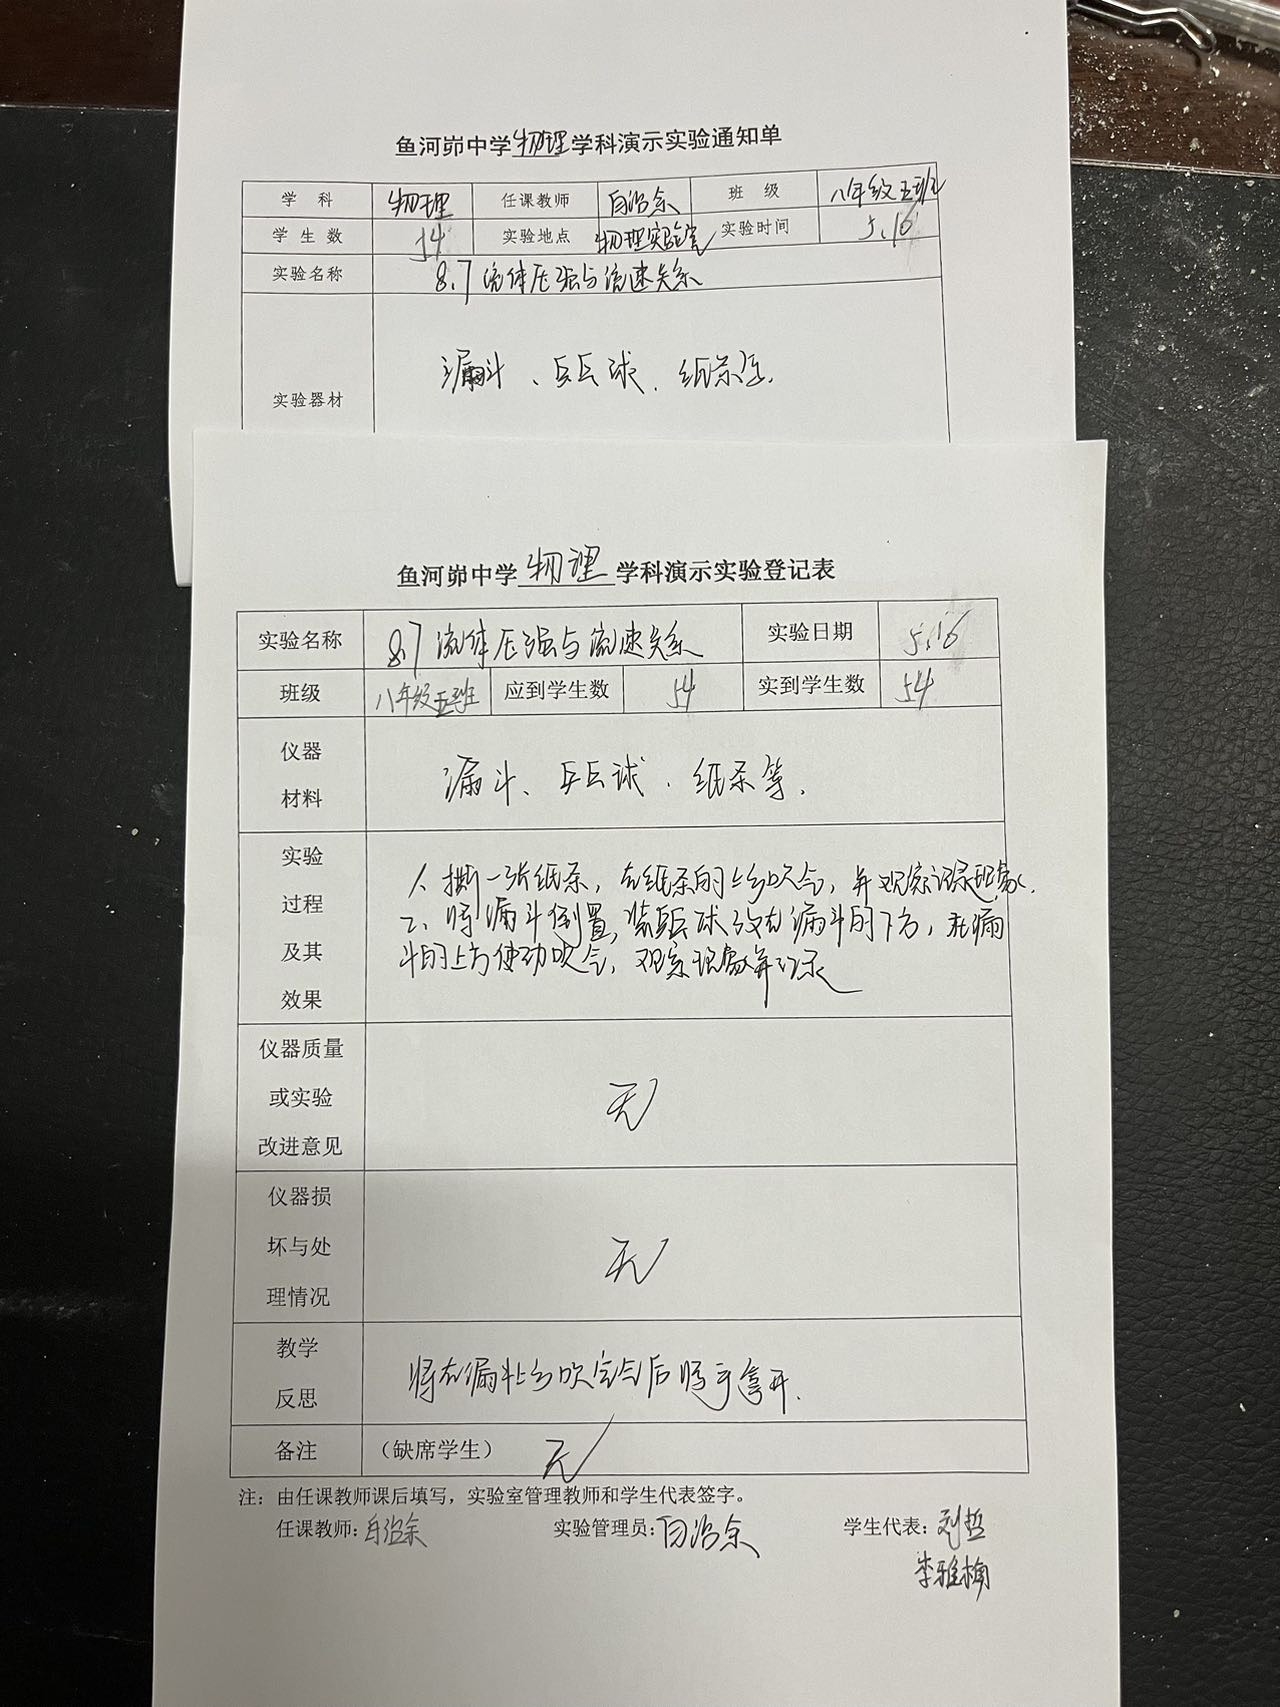 鱼河峁中学物理学科演示实验通知单
学 科 物理 任课教师 白治余 班 级 八年级五班
学生数 54 实验地点 物理实验室 实验时间 5.16
实验名称 8.7 流体压强与流速关系
实验器材 漏斗、乒乓球、纸条等.
鱼河峁中学 物理 学科演示实验登记表
实验名称 8.7 流体压强与流速关系 实验日期 5.16
班级 八年级五班 应到学生数 54 实到学生数 54
仪器
材料
漏斗、乒乓球、纸条等.
实验
过程
及其
效果
1. 撕一张纸条,在纸条的上方吹气,并观察记录现象.
2、将漏斗倒置,将乒乓球放在漏斗的下方,在漏
斗的上方使劲吹气,观察现象并记录
仪器质量
或实验
改进意见
无
仪器损
坏与处
理情况
无
教学
反思
将在漏斗上方吹完气后将手拿开.
备注 (缺席学生) 无
注:由任课教师课后填写,实验室管理教师和学生代表签字。
任课教师:白治余 实验管理员:白治余 学生代表:刘哲
李雅楠